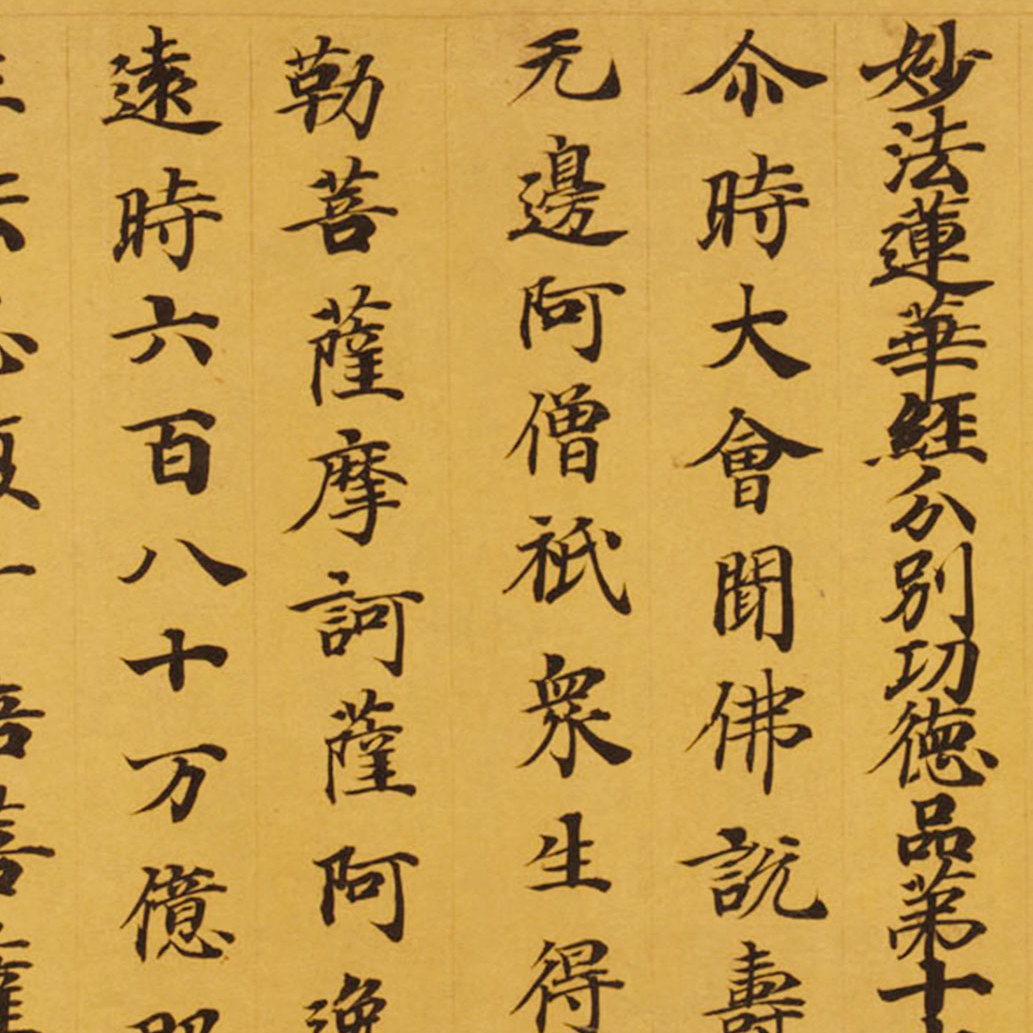 妙法蓮華經分別功德品第十
尒時大會聞佛說壽
无邊阿僧祇眾生得
勒菩薩摩訶薩阿逸
遠時六百八十万億